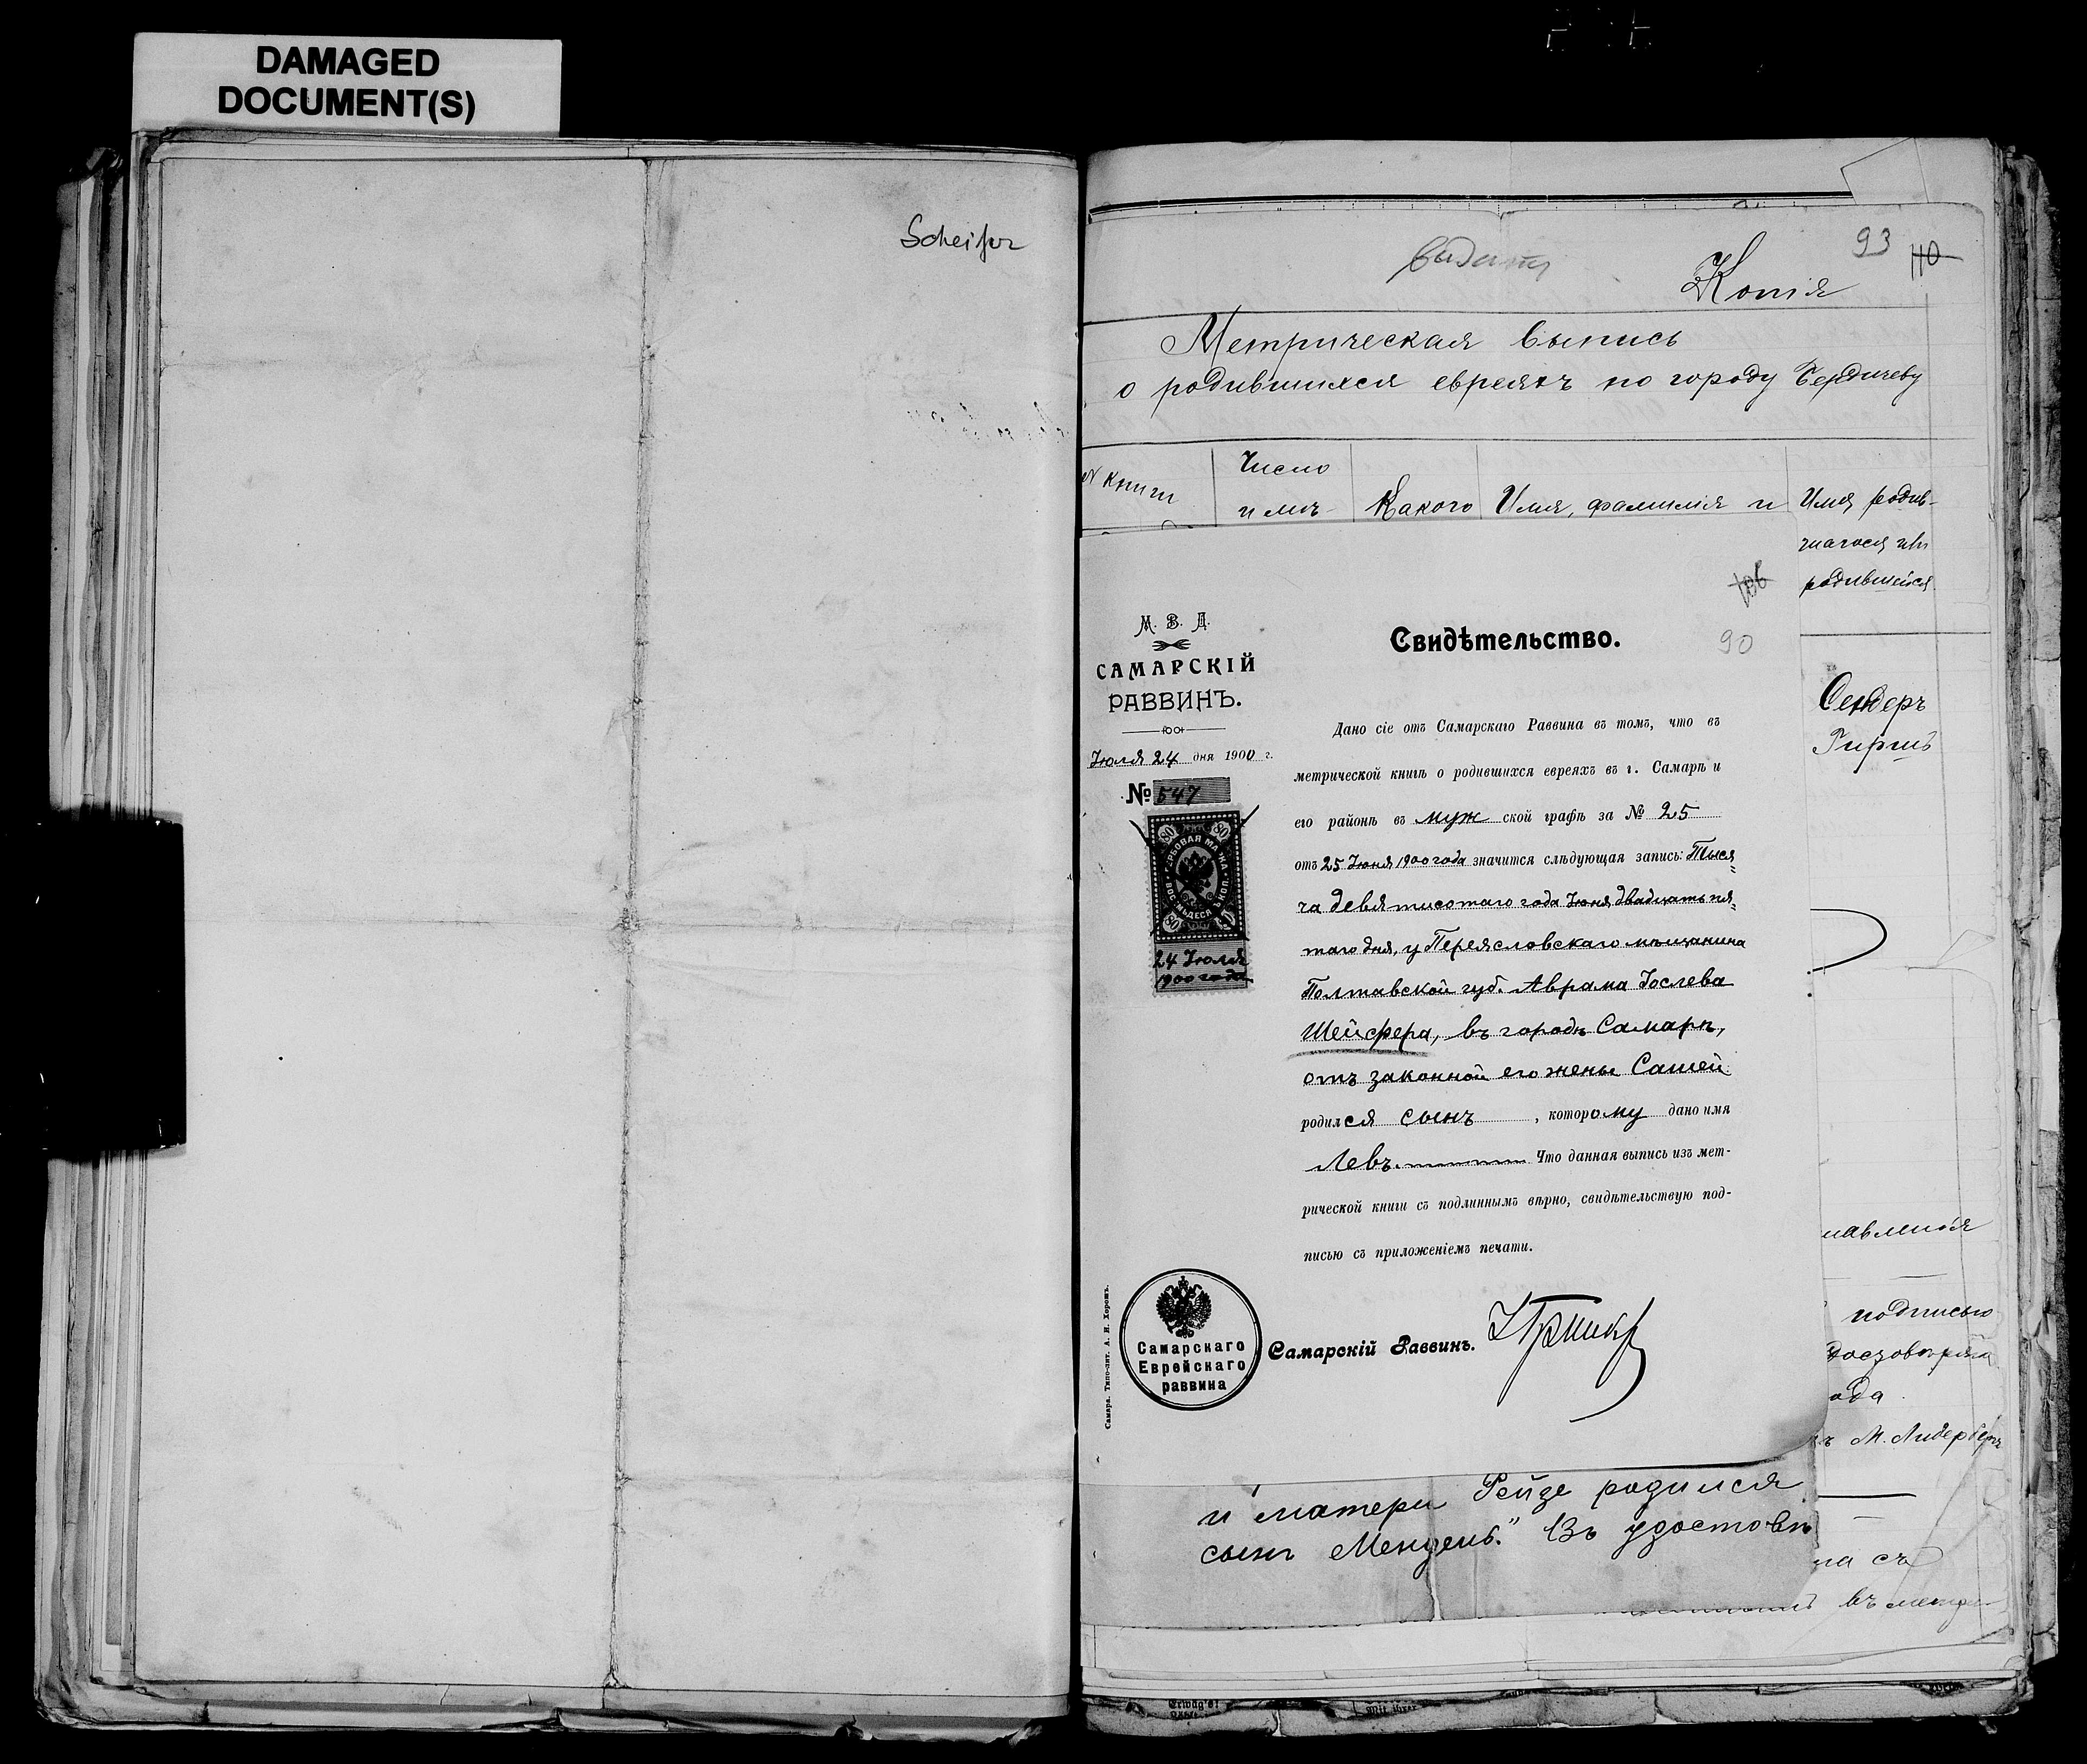 DAMAGED
DOCUMENT(S)
Scheifer
93
110
выдать
Копія
Метрическая выпись
о родившихся евреяхъ по городу Бердичеву
№ книги
Число
и мѣ-
Какого
Имя, фамилія и
Имя родив-
шагося или
родившейся
Сендеръ
Гиршъ
М. В. Д.
САМАРСКІЙ
РАВВИНЪ.
Іюля 24 дня 1900 г.
№ 547
80 80
ГЕРБОВАЯ МАРКА
ВОСЕМЬДЕСЯТЪ КОП.
80
24 Іюля
1900 года
Свидѣтельство.
90
Дано сіе отъ Самарскаго Раввина въ томъ, что въ
метрической книгѣ о родившихся евреяхъ въ г. Самарѣ и
его районѣ въ муж ской графѣ за № 25
отъ 25 Іюня 1900 года значится слѣдующая запись: Тыся„
ча девятисотаго года Іюня двадцать пя„
таго дня, у Переясловскаго мѣщанина
Полтавской губ. Аврама Іослева
Шейфера, въ городѣ Самарѣ,
отъ законной его жены Сашей
родился сынъ , которому дано имя
Левъ. Что данная выпись изъ мет-
рической книги съ подлиннымъ вѣрно, свидѣтельствую под-
писью съ приложеніемъ печати.
Самарскаго
Еврейскаго
раввина
Самарскій Раввинъ.
Самара. Типо-лит. А. Н. Хоромъ.
подписью
ода
М. Лидерберг
и матери Рейзе родился
сынъ Мендель." Въ удостовѣ
на съ
въ метри